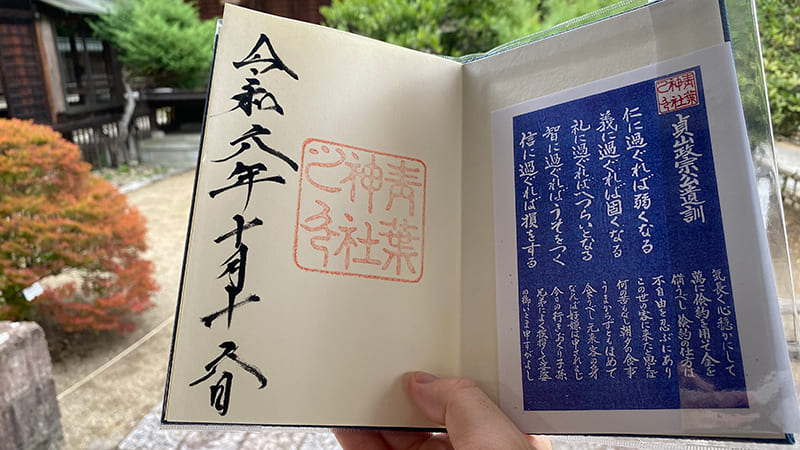 青葉
神社
之印
貞山政宗公遺訓
仁に過ぐれば弱くなる
義に過ぐれば固くなる
礼に過ぐればへつらいとなる
智に過ぐればうそをつく
信に過ぐれば損をする
気長く心穏かにして
萬に倹約を用いて金を
備うべし 倹約の仕方は
不自由を忍ぶにあり
この世の客に来たと思えば
何の苦もなし 朝夕の食事
うまからずともほめて
食うべし 元来客の身
なれば好嫌は申されまじ
今日の行きおくり子孫
兄弟によく挨拶して娑婆
の御いとま申すがよし
青葉
神社
之印
令和六年十月十六日